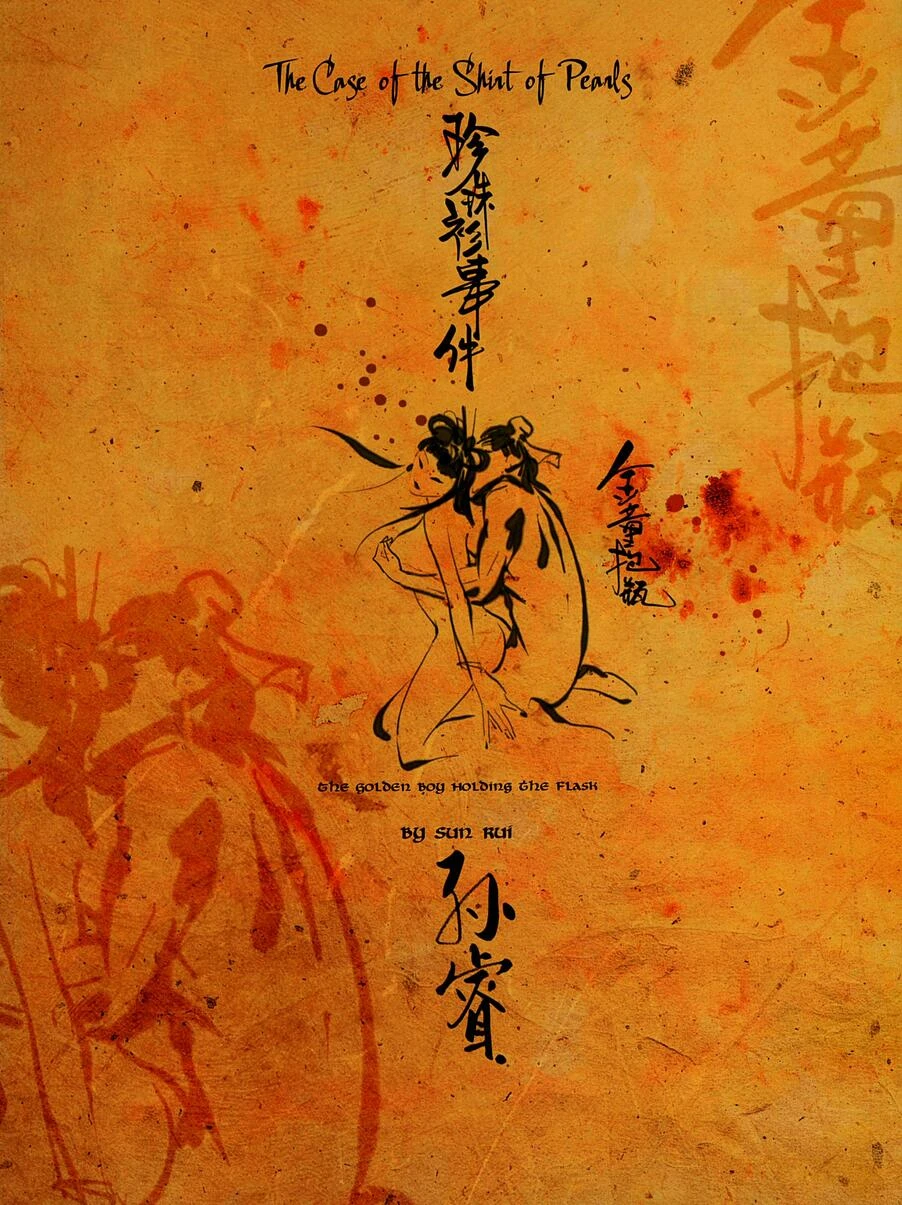 The Case of the Shirt of Pearls
珍珠衫事件
金童抱瓶
金童抱瓶
The Golden Boy Holding the Flask
By Sun Rui
孙睿